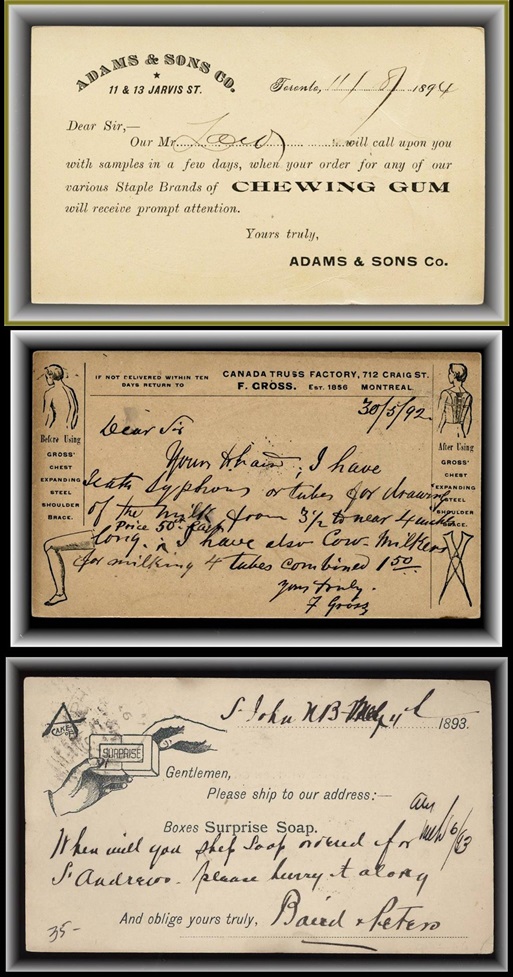 ADAMS & SONS CO.
11 & 13 JARVIS ST.
Toronto, 11/8/ 1894
Dear Sir,—
Our Mr. will call upon you
with samples in a few days, when your order for any of our
various Staple Brands of CHEWING GUM
will receive prompt attention.
Yours truly,
ADAMS & SONS Co.
IF NOT DELIVERED WITHIN TEN
DAYS RETURN TO
CANADA TRUSS FACTORY, 712 CRAIG ST.
F. GROSS. EST. 1856 MONTREAL.
30/5/92
Before Using
GROSS'
CHEST
EXPANDING
STEEL
SHOULDER
BRACE.
After Using
GROSS'
CHEST
EXPANDING
STEEL
SHOULDER
BRACE.
Dear Sir
Yours to hand, I have
Teats Syphons or tubes for drawing
of the milk from 3½ to near 4 inch
Price 50cts each
long. I have also Cow Milkers
for milking 4 tubes combined 1.50
yours truly.
F Gross
St John NB May 4th 1893.
CAKES
SURPRISE
Gentlemen,
Please ship to our address:—
Boxes Surprise Soap.
When will you ship Soap ordered for
St Andrews. please hurry it along
And oblige yours truly, Baird & Peters
35-